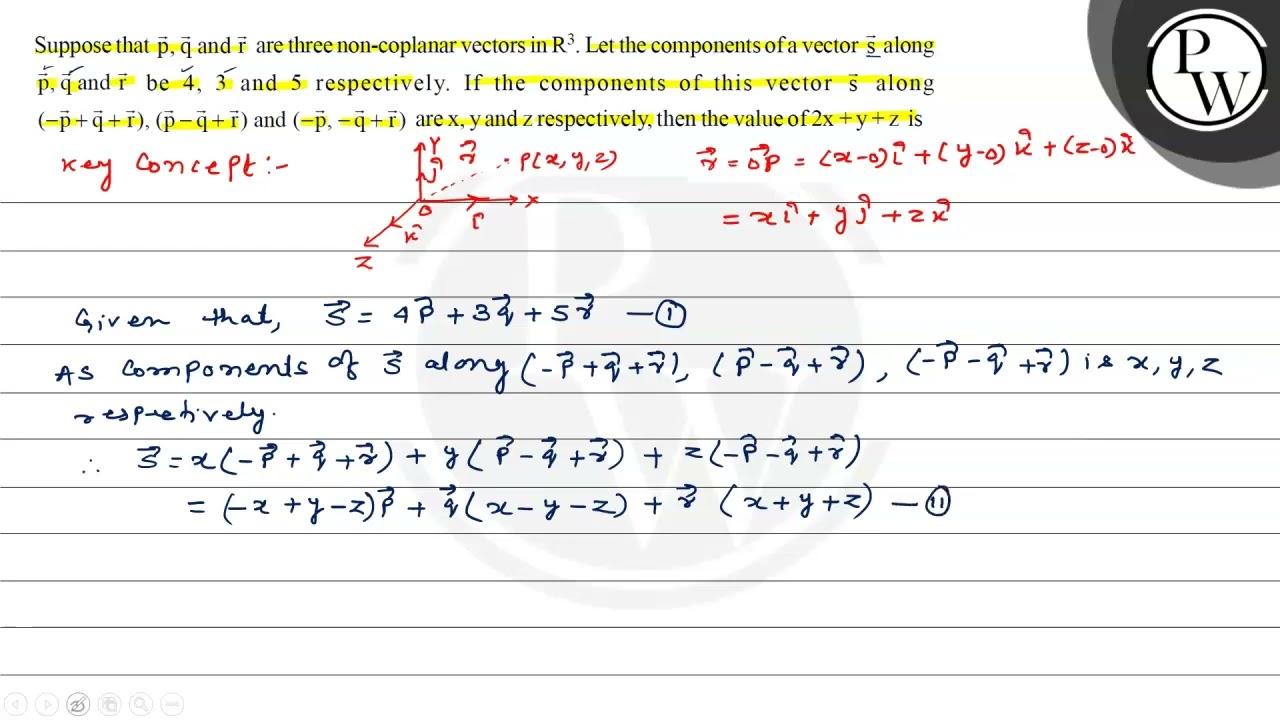 Suppose that p⃗, q⃗ and r⃗ are three non-coplanar vectors in R³. Let the components of a vector s⃗ along
p⃗, q⃗ and r⃗ be 4, 3 and 5 respectively. If the components of this vector s⃗ along
(−p⃗ + q⃗ + r⃗), (p⃗ − q⃗ + r⃗) and (−p⃗, −q⃗ + r⃗) are x, y and z respectively, then the value of 2x + y + z is
PW
Key Concept :-
Y
ĵ
r⃗
P(x, y, z)
O
î
X
k̂
Z
r⃗ = OP⃗ = (x-0)î + (y-0)k̂ + (z-0)k̂
= xî + yĵ + zk̂
Given that, s⃗ = 4p⃗ + 3q⃗ + 5r⃗ — ①
As components of s⃗ along (-p⃗ + q⃗ + r⃗), (p⃗ - q⃗ + r⃗), (-p⃗ - q⃗ + r⃗) is x, y, z
respectively.
∴ s⃗ = x(-p⃗ + q⃗ + r⃗) + y(p⃗ - q⃗ + r⃗) + z(-p⃗ - q⃗ + r⃗)
= (-x + y - z)p⃗ + q⃗(x - y - z) + r⃗ (x + y + z) — ⑪